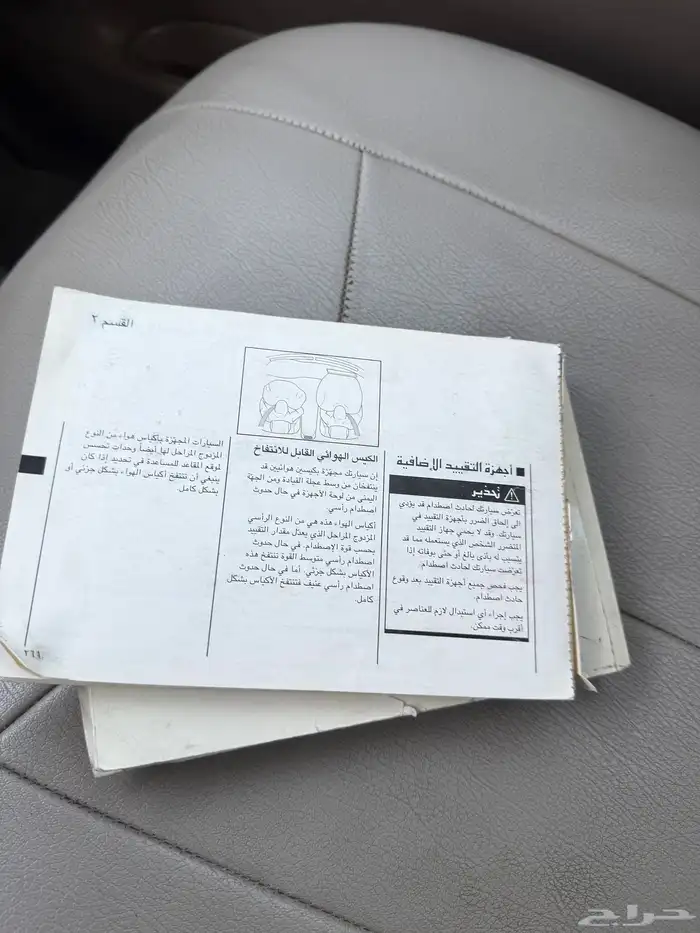 القسم ٢
■ أجهزة التقييد الإضافية
تحذير
تعرّض سيارتك لحادث اصطدام قد يؤدي
الى إلحاق الضرر بأجهزة التقييد في
سيارتك. وقد لا يحمي جهاز التقييد
المتضرر الشخص الذي يستعمله مما قد
يتسبب له بأذى بالغ أو حتى بوفاته إذا
تعرّضت سيارتك لحادث اصطدام.
يجب فحص جميع أجهزة التقييد بعد وقوع
حادث اصطدام.
يجب إجراء أي استبدال لازم للعناصر في
أقرب وقت ممكن.
الكيس الهوائي القابل للانتفاخ
إن سيارتك مجهّزة بكيسين هوائيين قد
ينتفخان من وسط عجلة القيادة ومن الجهة
اليمنى من لوحة الأجهزة في حال حدوث
اصطدام رأسي.
أكياس الهواء هذه هي من النوع الرأسي
المزدوج المراحل الذي يعدّل مقدار التقييد
بحسب قوة الإصطدام. في حال حدوث
اصطدام رأسي متوسط القوة تنتفخ هذه
الأكياس بشكل جزئي. أما في حال حدوث
اصطدام رأسي عنيف فتنتفخ الأكياس بشكل
كامل.
السيارات المجهّزة بأكياس هواء من النوع
المزدوج المراحل لها أيضاً وحدات تحسس
لموقع المقاعد للمساعدة في تحديد إذا كان
ينبغي أن تنتفخ أكياس الهواء بشكل جزئي أو
بشكل كامل.
حراج